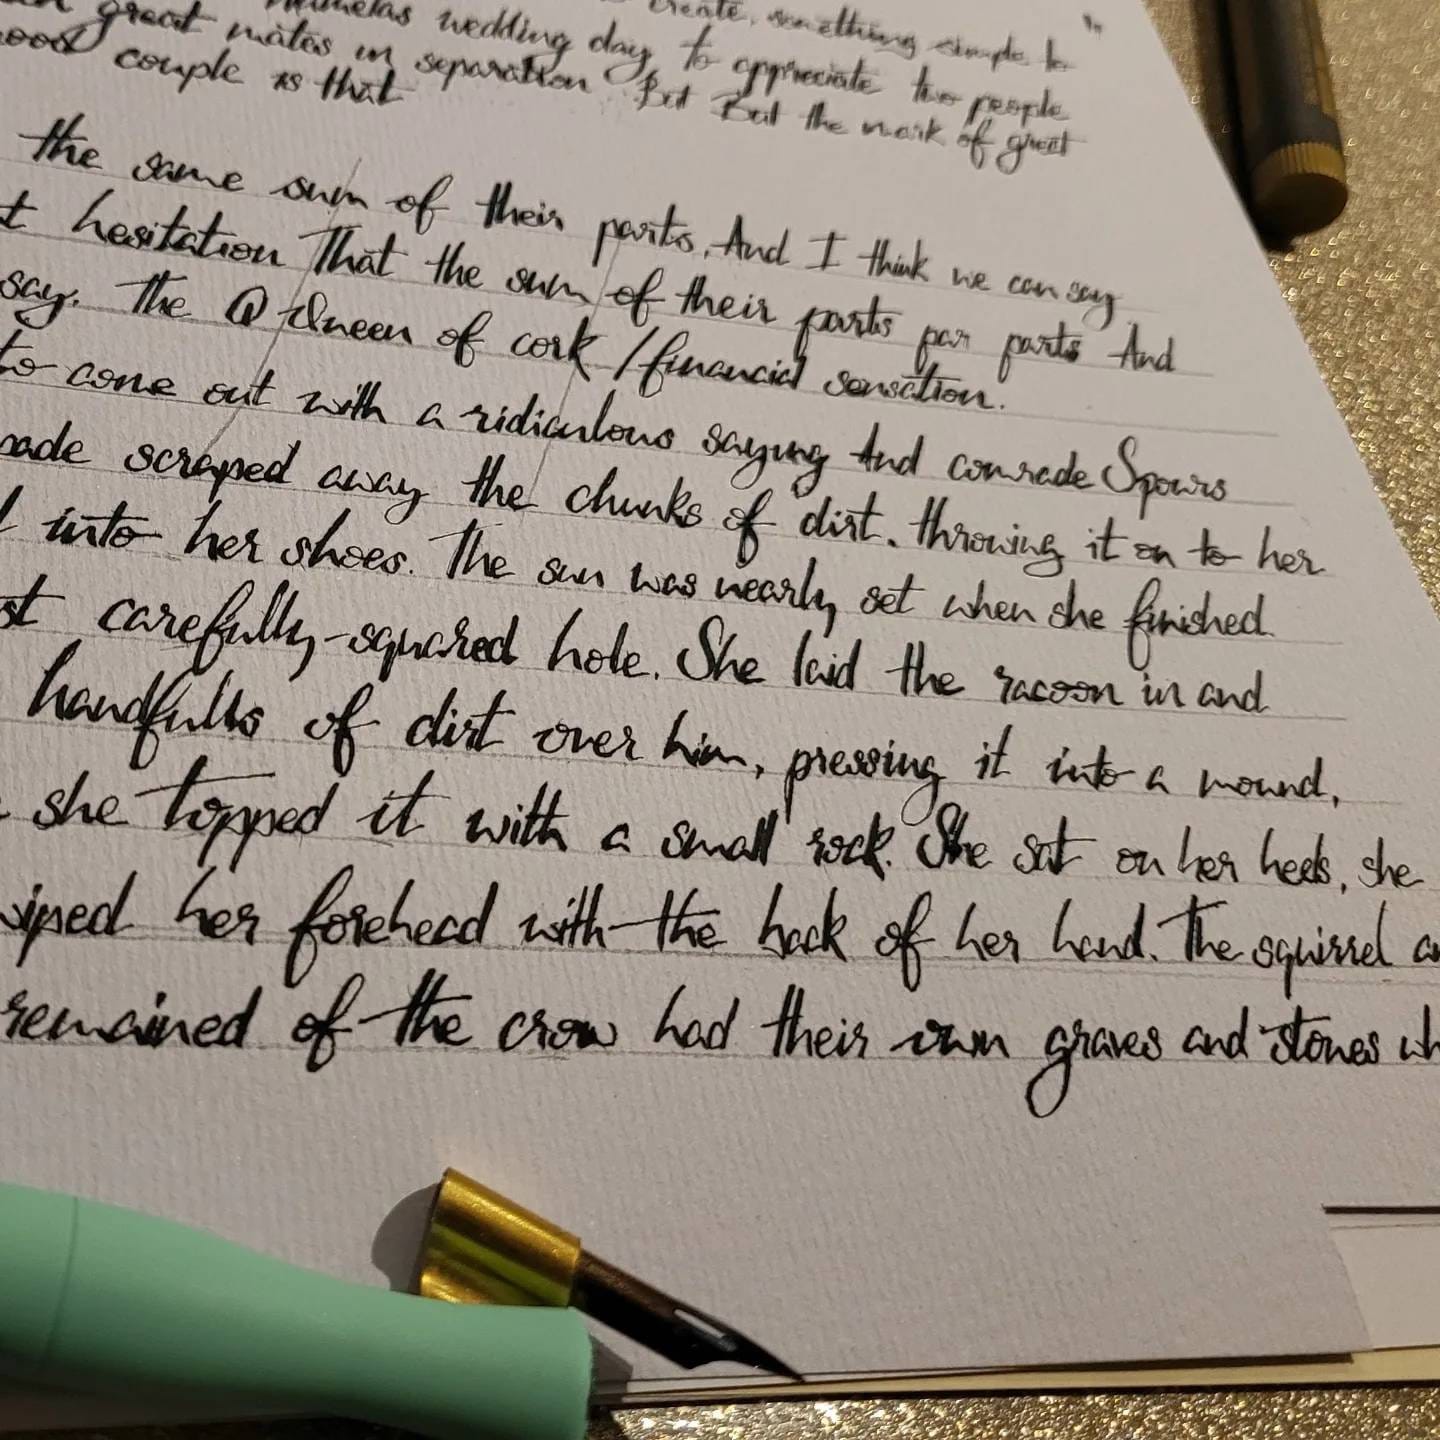 create, something simple to
wedding day, to appreciate two people
great mates in separation But But the mark of great
good couple is that
the same sum of their parts. And I think we can say
t hesitation That the sum of their parts par parts And
say. The Q Queen of cork / financial sensation.
to come out with a ridiculous saying And comrade Spours
ade scraped away the chunks of dirt. throwing it on to her
into her shoes. The sun was nearly set when she finished
st carefully-squared hole. She laid the racoon in and
handfulls of dirt over him, pressing it into a mound,
she topped it with a small rock. She sat on her heels, she
wiped her forehead with the back of her hand. The squirrel a
remained of the crow had their own graves and stones wh